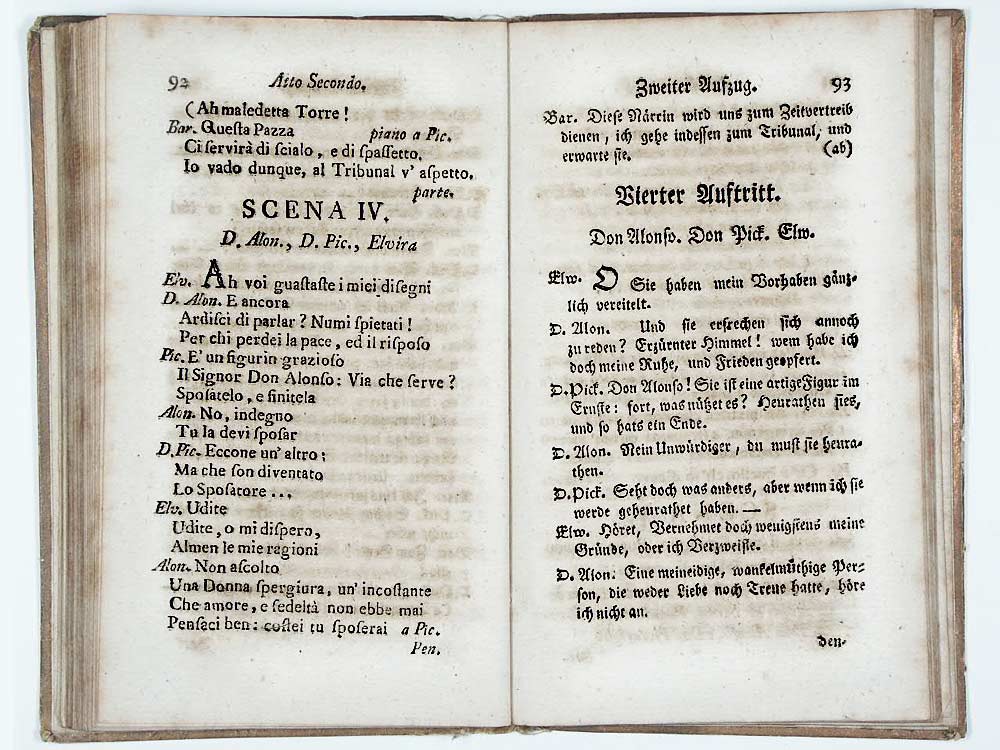 92 Atto Secondo.
(Ah maledetta Torre !
Bar. Queſta Pazza piano a Pic.
Ci ſervirà di ſcialo, e di ſpaſſetto.
Io vado dunque, al Tribunal v' aſpetto.
parte.
SCENA IV.
D. Alon., D. Pic., Elvira
Elv. Ah voi guaſtaſte i miei diſegni
D. Alon. E ancora
Ardiſci di parlar ? Numi ſpietati !
Per chi perdei la pace, ed il riſpoſo
Pic. E' un figurin grazioſo
Il Signor Don Alonſo: Via che ſerve ?
Spoſatelo, e finitela
Alon. No, indegno
Tu la devi ſpoſar
D. Pic. Eccone un' altro ;
Ma che ſon diventato
Lo Spoſatore ...
Elv. Udite
Udite, o mi diſpero,
Almen le mie ragioni
Alon. Non aſcolto
Una Donna ſpergiura, un' incoſtante
Che amore, e fedeltà non ebbe mai
Penſaci ben: coſtei tu ſpoſerai a Pic.
Pen.
Zweiter Aufzug. 93
Bar. Dieſe Närrin wird uns zum Zeitvertreib
dienen, ich gehe indeſſen zum Tribunal, und
erwarte ſie. (ab)
Vierter Auftritt.
Don Alonſo. Don Pick. Elw.
Elw. O Sie haben mein Vorhaben gänz-
lich vereitelt.
D. Alon. Und ſie erfrechen ſich annoch
zu reden? Erzürnter Himmel! wem habe ich
doch meine Ruhe, und Frieden geopfert.
D. Pick. Don Alonſo! Sie iſt eine artige Figur im
Ernſte: fort, was nützet es? Heurathen ſies,
und ſo hats ein Ende.
D. Alon. Nein Unwürdiger, du muſt ſie heura-
then.
D. Pick. Seht doch was anders, aber wenn ich ſie
werde geheurathet haben. —
Elw. Höret, Vernehmet doch wenigſtens meine
Gründe, oder ich Verzweifle.
D. Alon. Eine meineidige, wankelmüthige Per-
ſon, die weder Liebe noch Treue hatte, höre
ich nicht an.
den-